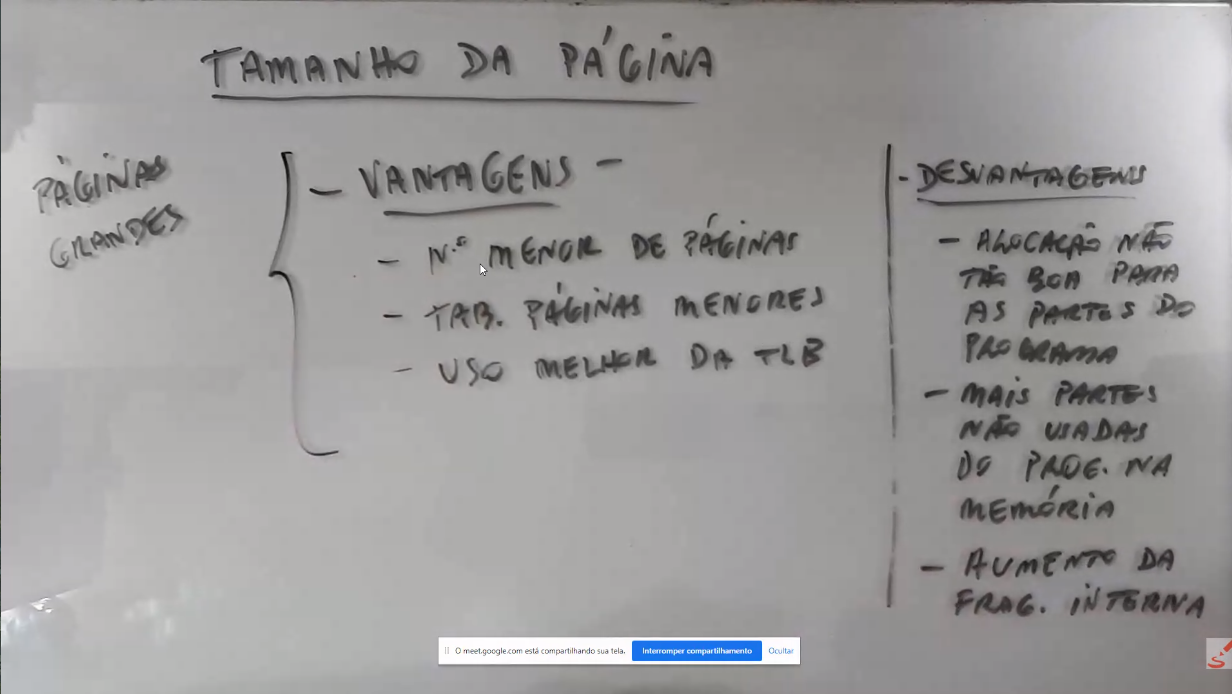 TAMANHO DA PÁGINA
PÁGINAS
GRANDES
- VANTAGENS -
- N.º MENOR DE PÁGINAS
- TAB. PÁGINAS MENORES
- USO MELHOR DA TLB
- DESVANTAGENS
- ALOCAÇÃO NÃO
TÃO BOA PARA
AS PARTES DO
PROGRAMA
- MAIS PARTES
NÃO USADAS
DO PROG. NA
MEMÓRIA
- AUMENTO DA
FRAG. INTERNA
O meet.google.com está compartilhando sua tela. Interromper compartilhamento Ocultar